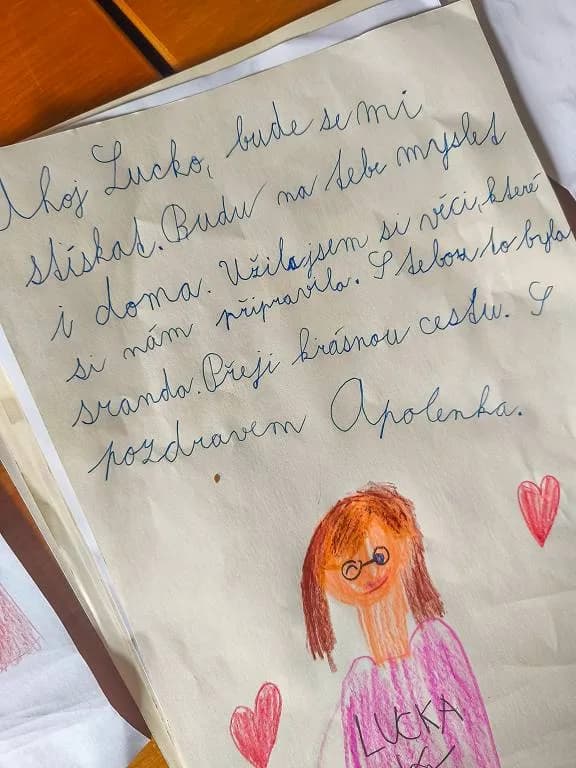 Ahoj Lucko, bude se mi
stískat. Budu na tebe myslet
i doma. Užila jsem si věci, které
si nám připravila. S tebou to byla
sranda. Přeji krásnou cestu. S
pozdravem Apolenka.
LUCKA